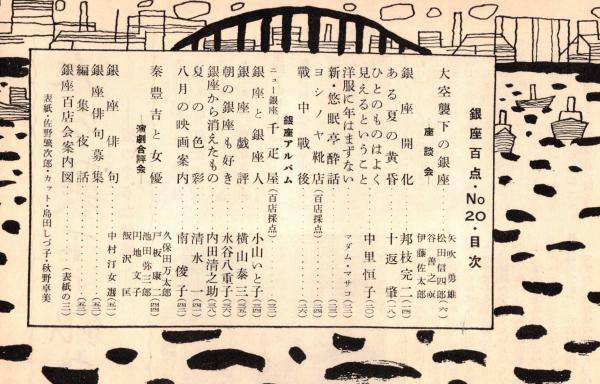 銀座百点・No20・目次
大空襲下の銀座
―座談会―
矢吹勇雄
松田信四郎(六)
谷善之丞
伊藤佐太郎
銀座開化 邦枝完二(四)
ある夏の黄昏 十返肇(一八)
ひとのものはよく
見えるということ 中里恒子(二〇)
洋服に年はまずない マダム・マサコ(三)
新・悠眠亭酔話
ヨシノヤ靴店(百店採点)
戰中戰後(二六)
銀座アルバム
ニュー銀座 千疋屋(百店採点)
銀座と銀座人 小山いと子
銀座戯評 横山泰三
朝の銀座も好き 水谷八重子
銀座から消えたもの 内田清之助(三八)
夏の色彩 清水一(四)
八月の映画案内 南俊子
秦豊吉と女優
―演劇合評会―
久保田万太郎
戸板康二
池田弥三郎
円地文子
飯沢匡
銀座俳句 中村汀女選
銀座俳句募集
編集夜話
銀座百店会案内図(表紙の三)
表紙・佐野繁次郎・カット・島田しづ子・秋野卓美